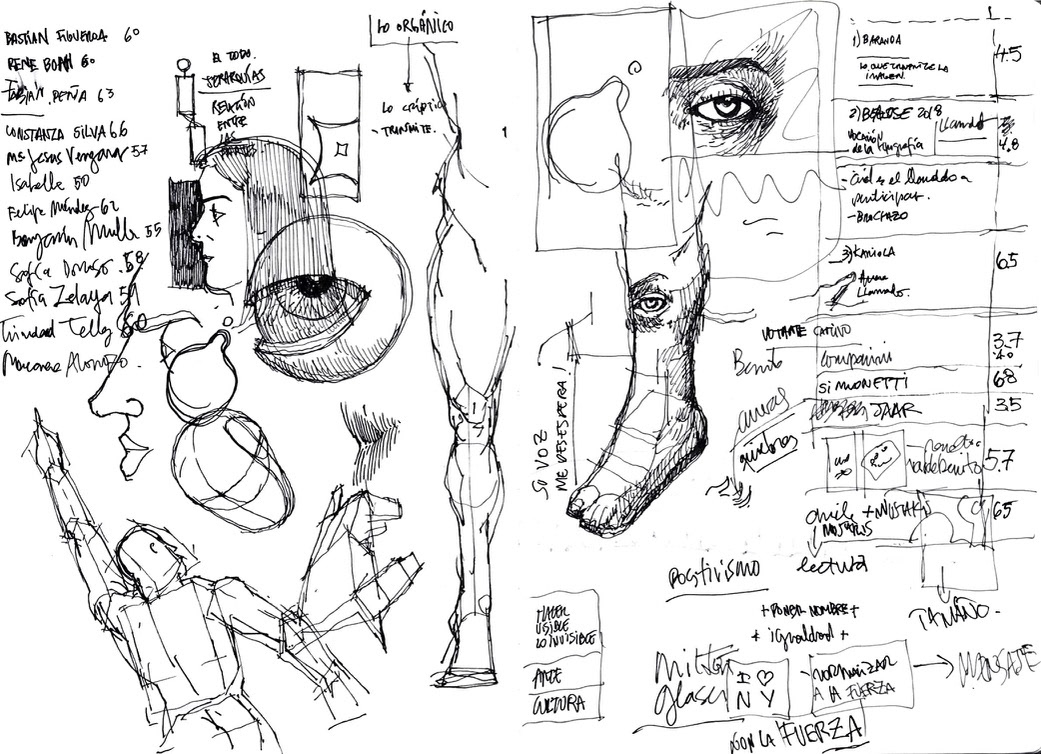 BASTIAN FIGUEROA 60
RENE BOHN 60
FABIAN PEÑA 63
CONSTANZA SILVA 66
Ma Jesus Vergara 57
Isabelle 50
Felipe Méndez 62
Benjamin Mulle 55
Sofía Donoso 58
Sofia Zelaya 51
Trinidad Tellez 60
Macarena Alonzo.
EL TODO.
JERARQUÍAS
RELACIÓN
ENTRE
LAS
LO ORGÁNICO
LO CRÍPTICO
- TRANSMITE.
1
SU VOZ
ME DESESPERA!
1) BARANDA
LO QUE TRANSMITE LA
IMAGEN.
4.5
2) 2018
VOCACIÓN
de la tipografía
LLamado
4.8
- Cuál es el llamado a
participar.
- BROCHAZO
3) KAMOLA
Arma
LLamado.
65
VOTANTE CATIVO
Benito
3.7
4.0
SIMONETTI
68
JAAR
35
5.7
quiebres
+ MISTAKES
65
lectura
TAMAÑO -
POSITIVISMO
+ PONER NOMBRE +
+ igualdad +
HACER
VISIBLE
LO INVISIBLE
ARTE
CULTURA
Milton
glaser
I ♡
N Y
- NORMALIZAR
A LA FUERZA
→ MENSAJE
CON LA FUERZA